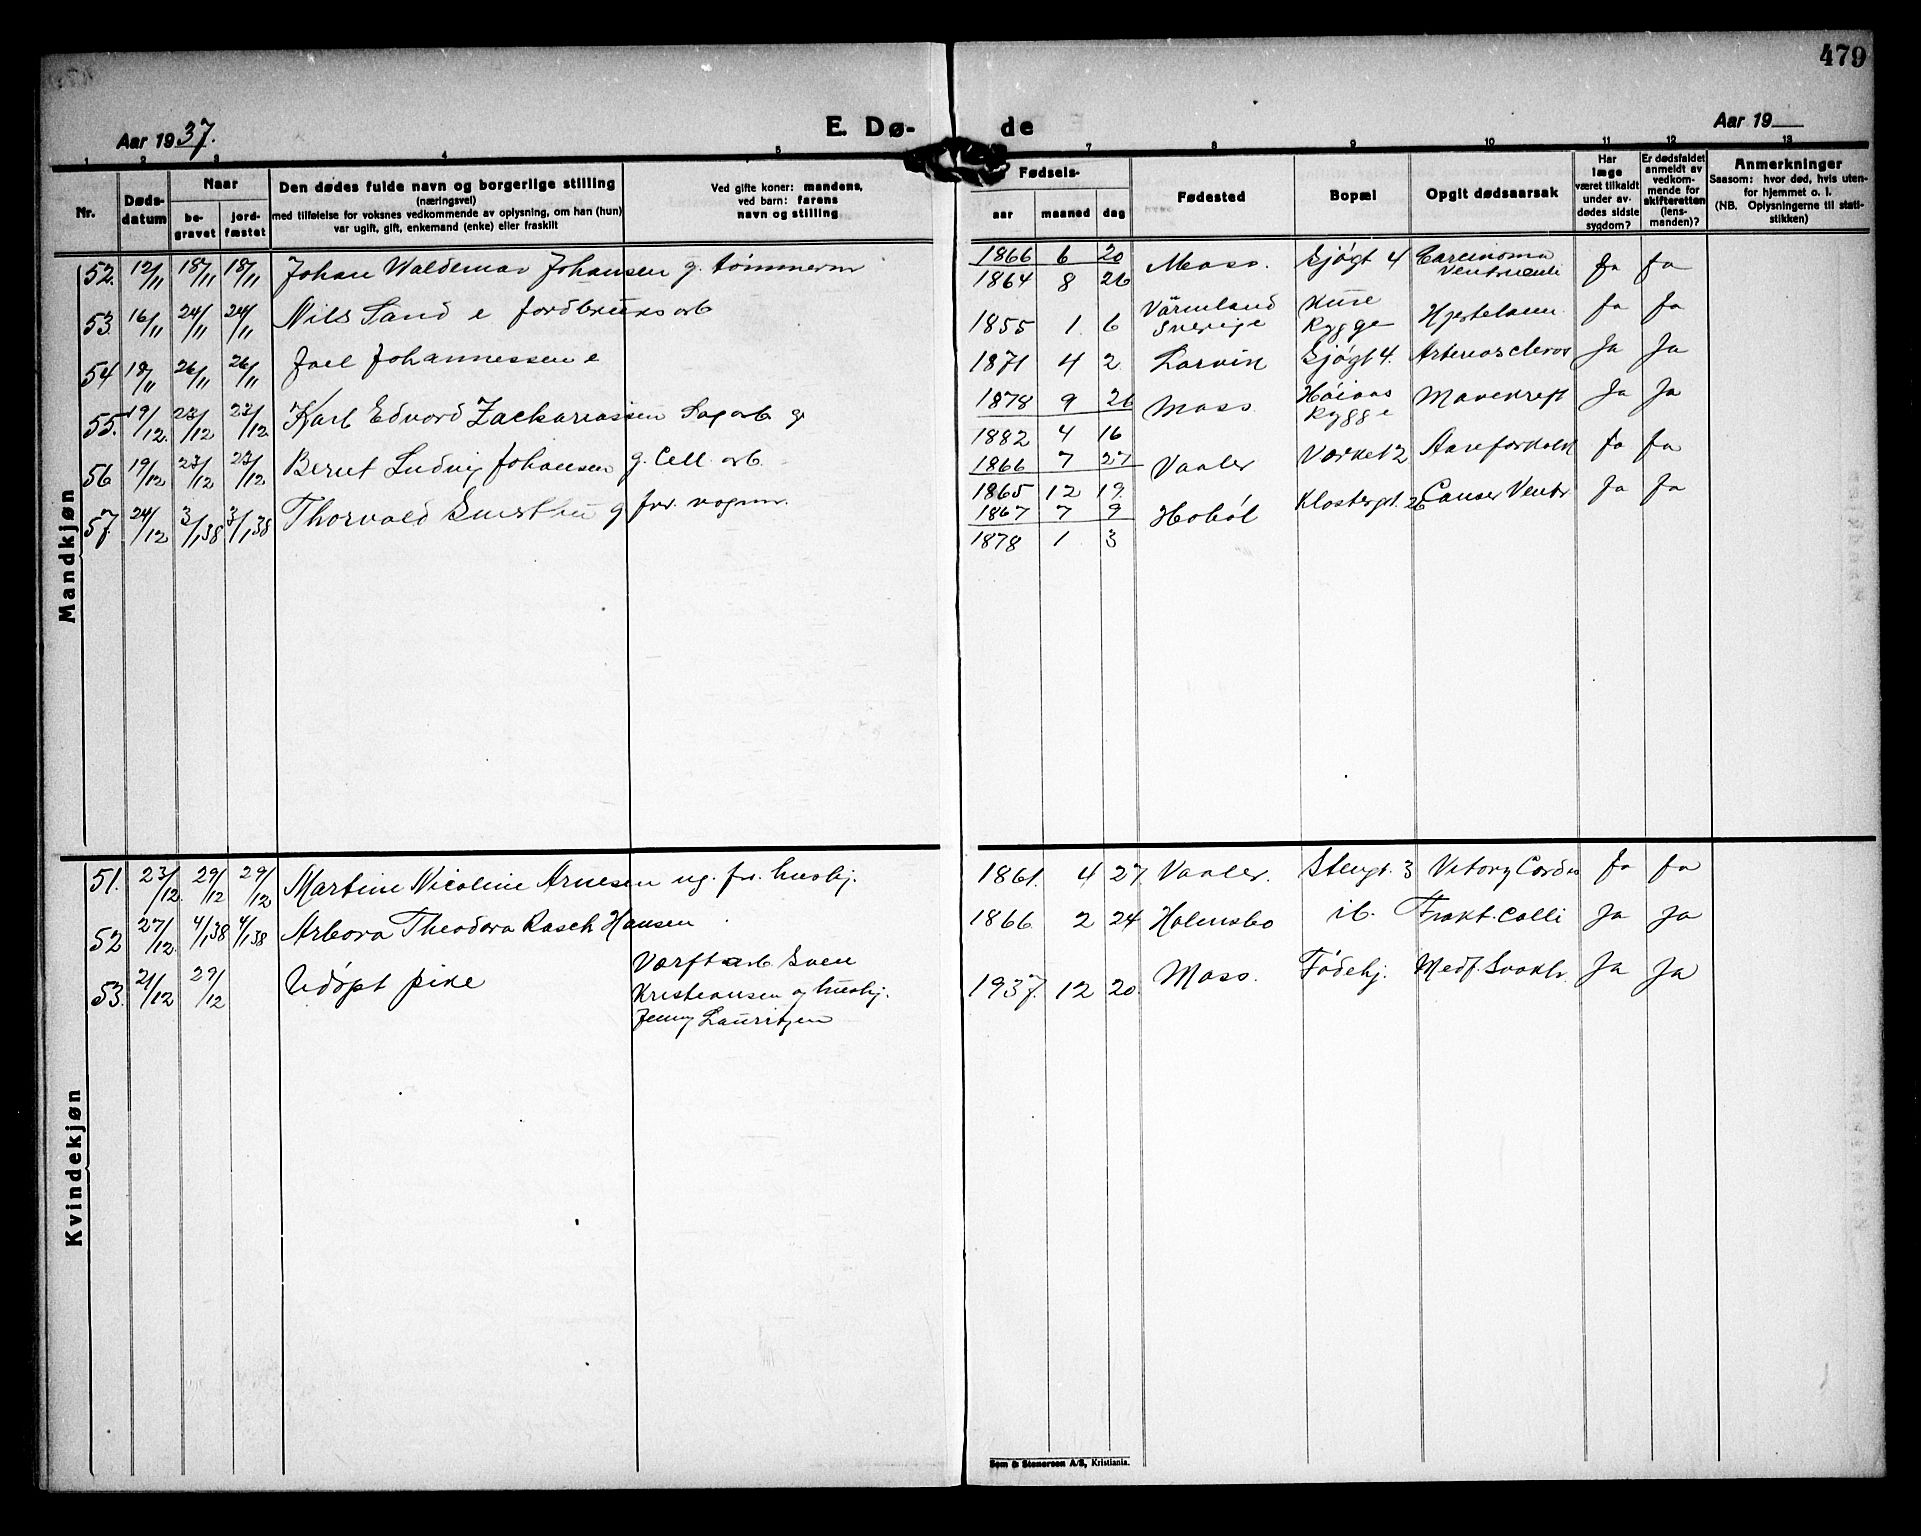 479
Aar 1937.
E. Dø-
de
Aar 19
1 2 3 4 5 7 8 9 10 11 12 13
Nr.
Døds-
datum
Naar
be-
gravet
jord-
fæstet
Den dødes fulde navn og borgerlige stilling
(næringsvei)
med tilføielse for voksnes vedkommende av oplysning, om han (hun)
var ugift, gift, enkemand (enke) eller fraskilt
Ved gifte koner: mandens,
ved barn: farens
navn og stilling
Fødsels-
aar maaned dag
Fødested
Bopæl
Opgit dødsaarsak
Har
læge
været tilkaldt
under av-
dødes sidste
sygdom?
Er dødsfaldet
anmeldt av
vedkom-
mende for
skifteretten
(lens-
manden)?
Anmerkninger
Saasom: hvor død, hvis uten-
for hjemmet o. l.
(NB. Oplysningerne til stati-
stikken)
Mandkjøn
52. 12/11 18/11 18/11 Johan Waldemar Johansen g. tømmerm 1866 6 20 Moss. Sjøgt 4 Carcinoma Ja Ja
1864 8 26
53. 16/11 24/11 24/11 Nils Sand e jordbruksarb 1855 1. 6 Värmland Sverige Rygge Ja Ja
54 18/11 26/11 26/11 Joel Johannessen e 1871 4 2 Larvik Sjøgt 4. Arterioscleros Ja Ja
55. 19/12. 23/12 23/12 Karl Edvard Zackariassen Sagarb g 1878 9 26 Moss. Høiaas Rygge Mavekreft Ja Ja
1882 4 16
56 19/12 23/12 23/12 Bernt Ludvig Johansen g. Cell. arb. 1866 7 27 Vaaler Værket 2 Aareforkalk Ja Ja
1865 12 19.
57. 24/12 3/1 38 3/1 38 Thorvald g fhv. vognm. 1867 7 9 Hobøl Klostergt. 26 Cancer Ventr Ja Ja
1878 1 3
Kvindekjøn
51. 23/12. 29/12 29/12 Martine Nicoline Arnesen ug. fhv. hushj. 1861. 4 27. Vaaler. Stengt. 3 Cordis Ja Ja
52 27/12. 4/1 38 4/1 38 Arbora Theodora Rasch Hansen 1866. 2 24 Holmsbo ib. Frakt. Colli Ja Ja
53. 21/12 29/12 Udøpt pike Værftsarb. Sven
Kristiansen og hushj.
Jenny Lauritzen
1937. 12 20. Moss. Fødehj. Medf. Svakh. Ja Ja
Sem & Stenersen A/S, Kristiania.